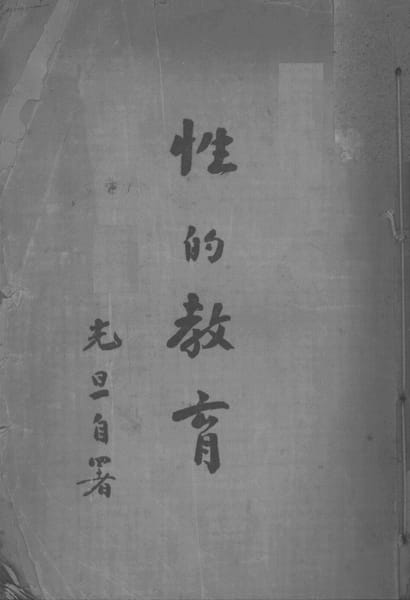 性的教育
光旦自署